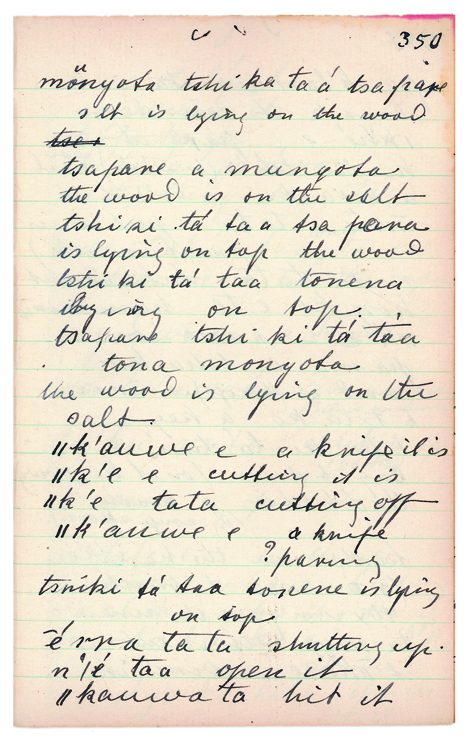 350
mönyota tshi ka ta á tsapare
salt is lying on the wood
tsapare a mungota
the wood is on the salt
tshi ki tá taa tsa para
is lying on top the wood
tshi ki tá taa tonena
lying on top.
tsapare tshi ki tá táa
tona mongota
the wood is lying on the
salt.
ǁk'auwe e a knife it is
ǁk'e e cutting it is
ǁk'e tata cutting off
ǁk'auwe e a knife
? paring
tshiki tá taa tonene is lying
on top
érra ta ta shutting up.
taa open it
ǁkauwa ta hit it